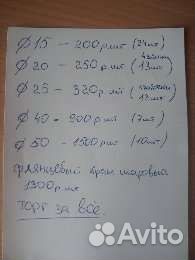 Ø 15 - 200 р.шт (24шт)
Ø 20 - 250 р.шт (13шт)
Ø 25 - 320 р.шт (12шт)
Ø 40 - 900 р.шт (7шт)
Ø 50 - 1500 р.шт (10шт)
фланцевый кран шаровый
1300 р.шт
торг за всё.
Avito